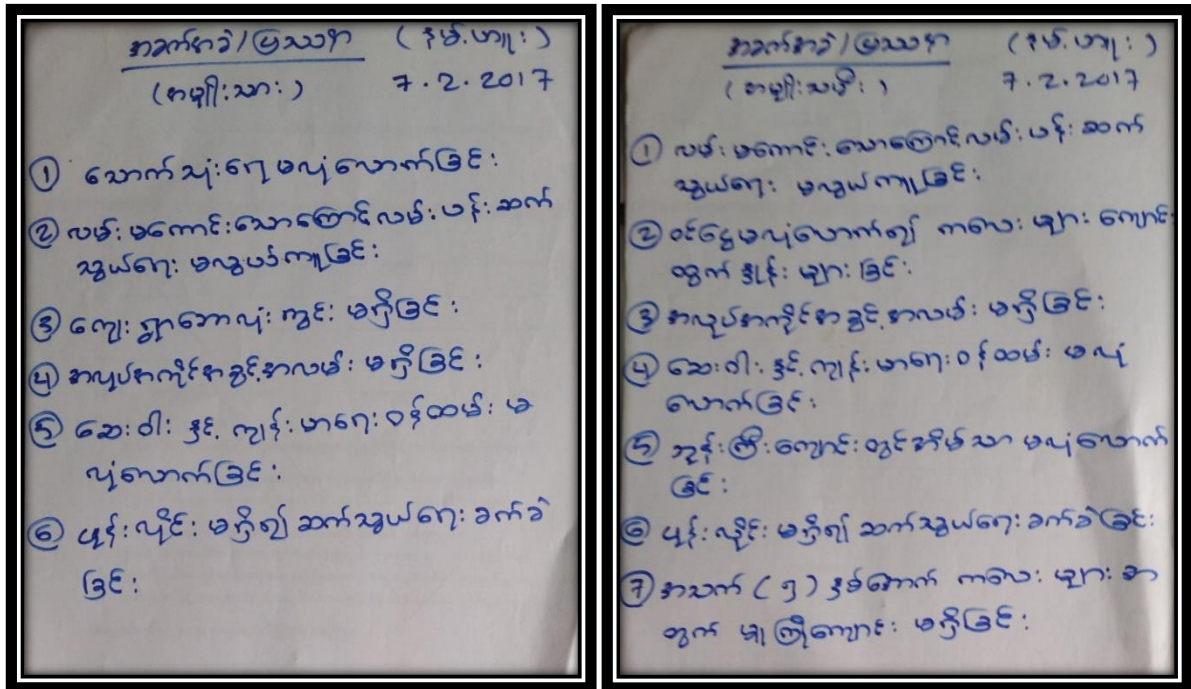 အခက်အခဲ/ပြဿနာ (နမ်.ဟူး)
(အမျိုးသား) 7.2.2017
① သောက်သုံးရေမလုံလောက်ခြင်း
② လမ်းမကောင်းသောကြောင့်လမ်းပန်းဆက်
သွယ်ရေး မလွယ်ကူခြင်း
③ ကျေးရွာဘောလုံးကွင်း မရှိခြင်း
④ အလုပ်အကိုင်အခွင့်အလမ်း မရှိခြင်း
⑤ ဆေးဝါး နှင့် ကျန်းမာရေးဝန်ထမ်း မ
လုံလောက်ခြင်း
⑥ ဖုန်းလိုင်း မရှိ၍ ဆက်သွယ်ရေးခက်ခဲ
ခြင်း
အခက်အခဲ/ပြဿနာ (နမ်.ဟူး)
(အမျိုးသမီး) 7.2.2017
① လမ်းမကောင်းသောကြောင့်လမ်းပန်းဆက်
သွယ်ရေး မလွယ်ကူခြင်း
② ဝင်ငွေမလုံလောက်၍ ကလေးများ ကျောင်း
ထွက်နှုန်း များခြင်း
③ အလုပ်အကိုင်အခွင့်အလမ်း မရှိခြင်း
④ ဆေးဝါး နှင့် ကျန်းမာရေးဝန်ထမ်း မလုံ
လောက်ခြင်း
⑤ ဘုန်းကြီးကျောင်းတွင်အိမ်သာ မလုံလောက်
ခြင်း
⑥ ဖုန်းလိုင်း မရှိ၍ ဆက်သွယ်ရေးခက်ခဲခြင်း
⑦ အသက် (၅) နှစ်အောက် ကလေးများ အ
တွက် မူကြိုကျောင်း မရှိခြင်း